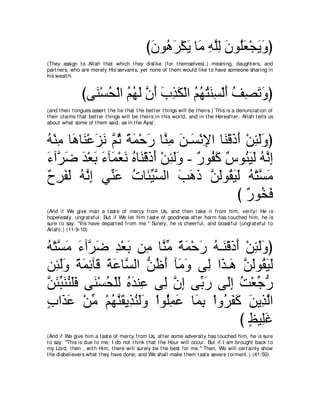 (وَيَجْعَلُونَ لِلَّهِ مَا يَكْرَهُونَ)
(They assign to Allah that which they dislike (for themselves),) meaning, daughters, and
partners, who are merely His servants, yet none of them would like to have someone sharing in
his wealth.
(وَتَصِفُ أَلْسِنَتُهُمُ الْكَذِبَ أَنَّ لَهُمُ الْحُسْنَى)
(and their tongues assert the lie that the better things will be theirs.) This is a denunciation of
their claims that better things will be theirs in this world, and in the Hereafter. Allah tells us
about what some of them said, as in the Ayat:
(وَلَئِنْ أَذَقْنَا الإِنْسَـنَ مِنَّا رَحْمَةً ثُمَّ نَزَعْنَاهَا مِنْهُ
إِنَّهُ لَيَئُوسٌ كَفُورٌ - وَلَئِنْ أَذَقْنَاهُ نَعْمَآءَ بَعْدَ ضَرَّآءَ
مَسَّتْهُ لَيَقُولَنَّ ذَهَبَ السَّيِّئَاتُ عَنِّي إِنَّهُ لَفَرِحٌ
فَخُورٌ )
(And if We give man a taste of mercy from Us, and then take it from him, verily! He is
hopelessly, ungrateful. But if We let him taste of goodness after harm has touched him, he is
sure to say: "Ills have departed from me." Surely, he is cheerful, and boastful (ungrateful to
Allah).) (11:9-10)
(وَلَئِنْ أَذَقْنَـهُ رَحْمَةً مِّنَّا مِن بَعْدِ ضَرَّآءَ مَسَّتْهُ
لَيَقُولَنَّ هَـذَا لِى وَمَآ أَظُنُّ السَّاعَةَ قَآئِمَةً وَلَئِن
رُّجِّعْتُ إِلَى رَبِّى إِنَّ لِى عِندَهُ لَلْحُسْنَى فَلَنُنَبِّئَنَّ
الَّذِينَ كَفَرُواْ بِمَا عَمِلُواْ وَلَنُذِيقَنَّهُمْ مِّنْ عَذَابٍ
غَلِيظٍ )
(And if We give him a taste of mercy from Us, after some adversity has touched him, he is sure
to say: "This is due to me; I do not think that the Hour will occur. But if I am brought back to
my Lord, then , with Him, there will surely be the best for me." Then, We will certainly show
the disbelievers what they have done, and We shall make them taste severe torment.) (41:50)